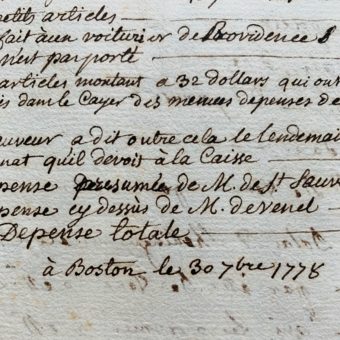 petits articles
fait à un voiturier de Providence 8
n'est pas porté
articles montant a 32 dollars qui ont
is dans le Cayer des menues depenses de
auveur a dit outre cela le lendemai
nat qu'il devoit à la Caisse
pense presumée de M. de St Sauv
pense cy dessus de M. de venel
Depense totale
à Boston le 30 7bre 1778